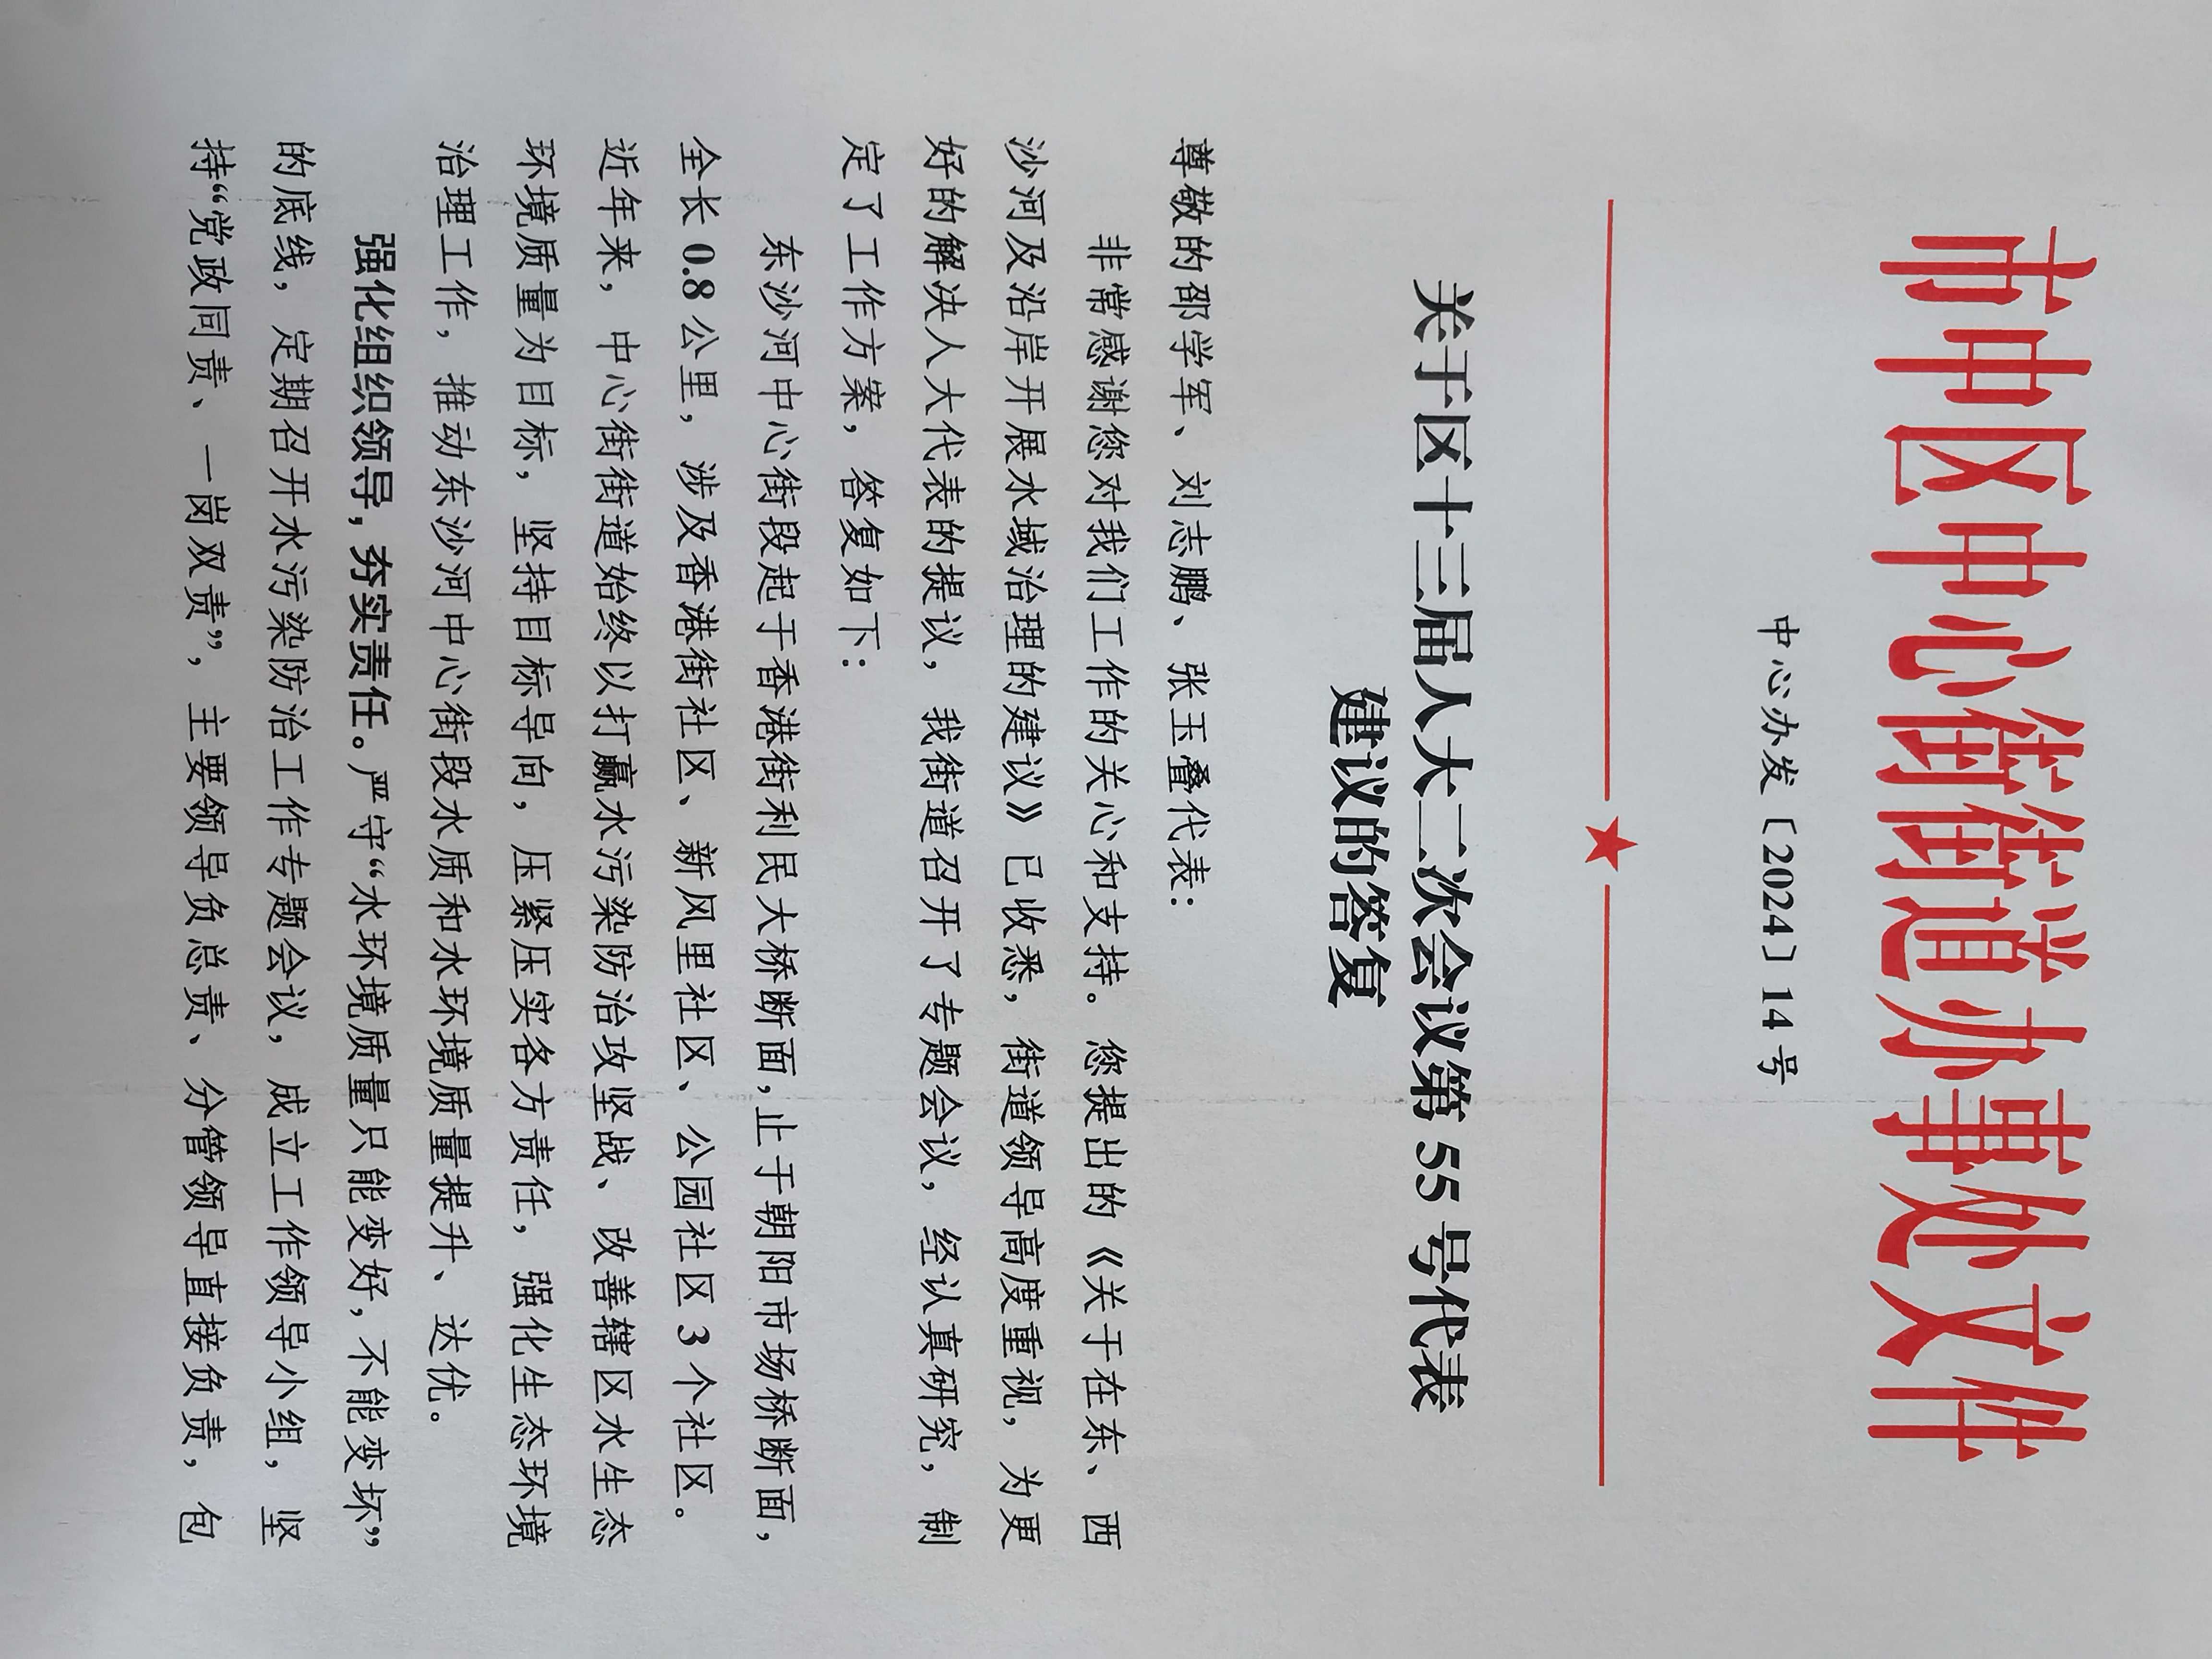 市中区中心街街道办事处文件
中心办发〔2024〕14号
关于区十三届人大二次会议第55号代表
建议的答复
尊敬的邵学军、刘志鹏、张玉叠代表：
非常感谢您对我们工作的关心和支持。您提出的《关于在东、西
沙河及沿岸开展水域治理的建议》已收悉，街道领导高度重视，为更
好的解决人大代表的提议，我街道召开了专题会议，经认真研究，制
定了工作方案，答复如下：
东沙河中心街段起于香港街利民大桥断面，止于朝阳市场桥断面，
全长0.8公里，涉及香港街社区、新风里社区、公园社区3个社区。
近年来，中心街街道始终以打赢水污染防治攻坚战、改善辖区水生态
环境质量为目标，坚持目标导向，压紧压实各方责任，强化生态环境
治理工作，推动东沙河中心街段水质和水环境质量提升、达优。
强化组织领导，夯实责任。严守“水环境质量只能变好，不能变坏”
的底线，定期召开水污染防治工作专题会议，成立工作领导小组，坚
持“党政同责、一岗双责”，主要领导负总责、分管领导直接负责，包